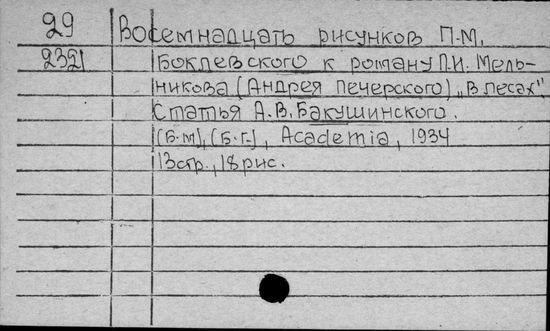 29 Восемнадцать рисунков П.М.
2321 Боклевского к роману П.И. Мель-
никова (Андрея Печерского) „В лесах"
Статья А.В. Бакушинского.
(Б.м), (Б.г.), Academia, 1934
13стр., 18рис.